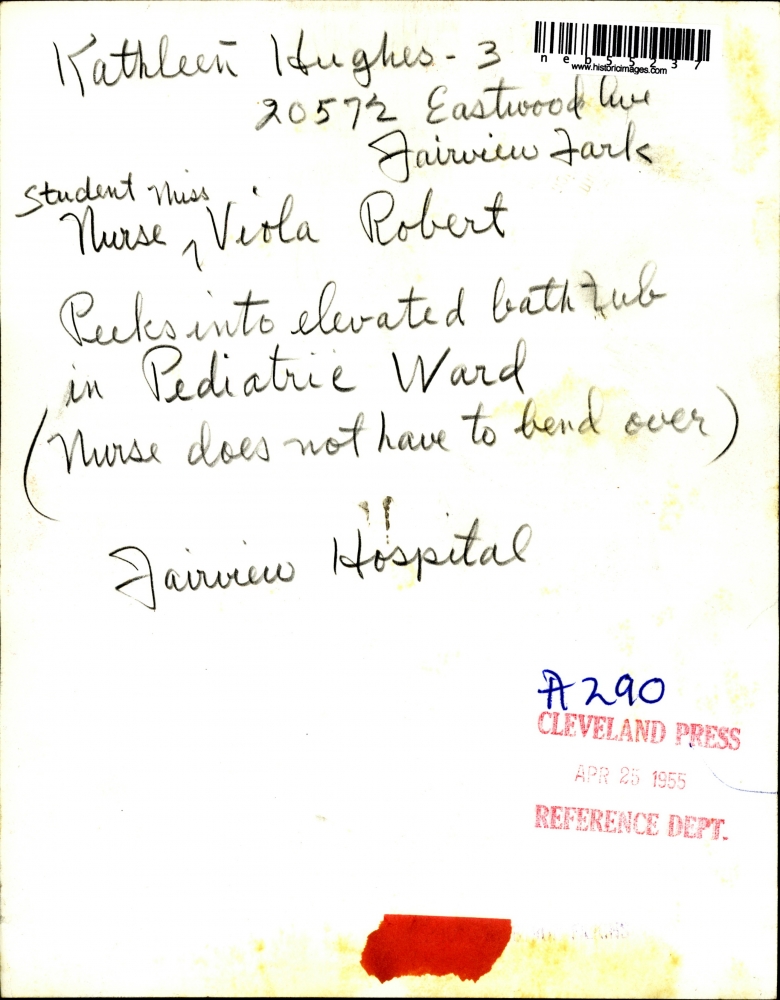 Kathleen Hughes - 3
neb55237
www.historicimages.com
20572 Eastwood Ave
Fairview Park
Student Miss
Nurse ^ Viola Robert
Peeks into elevated bath tub
in Pediatric Ward
(Nurse does not have to bend over)
Fairview Hospital
A290
CLEVELAND PRESS
APR 25 1955
REFERENCE DEPT.